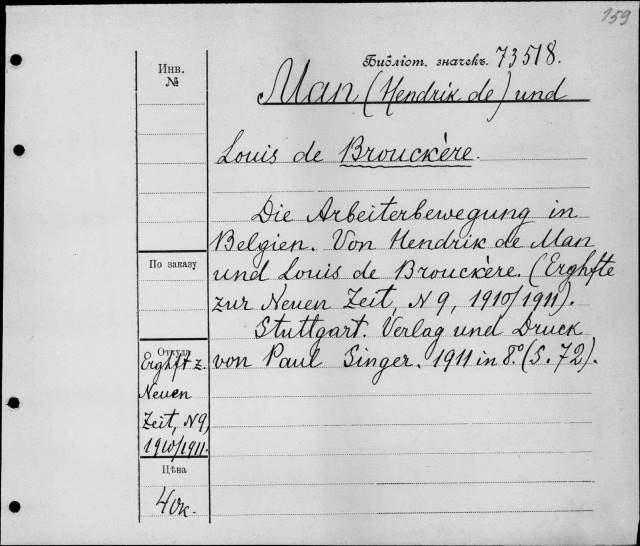 159
Библіот. значекъ. 73518.
Инв.
№
Man (Hendrik de) und
Louis de Brouckère.
Die Arbeiterbewegung in
Belgien. Von Hendrik de Man
По заказу
und Louis de Brouckère. (Erghfte
zur Neuen Zeit, N 9, 1910/1911).
Stuttgart. Verlag und Druck
von Paul Singer. 1911 in 8.º (S. 72).
Откуда
Erghft z.
Neuen
Zeit, N 9,
1910/1911.
Цѣна